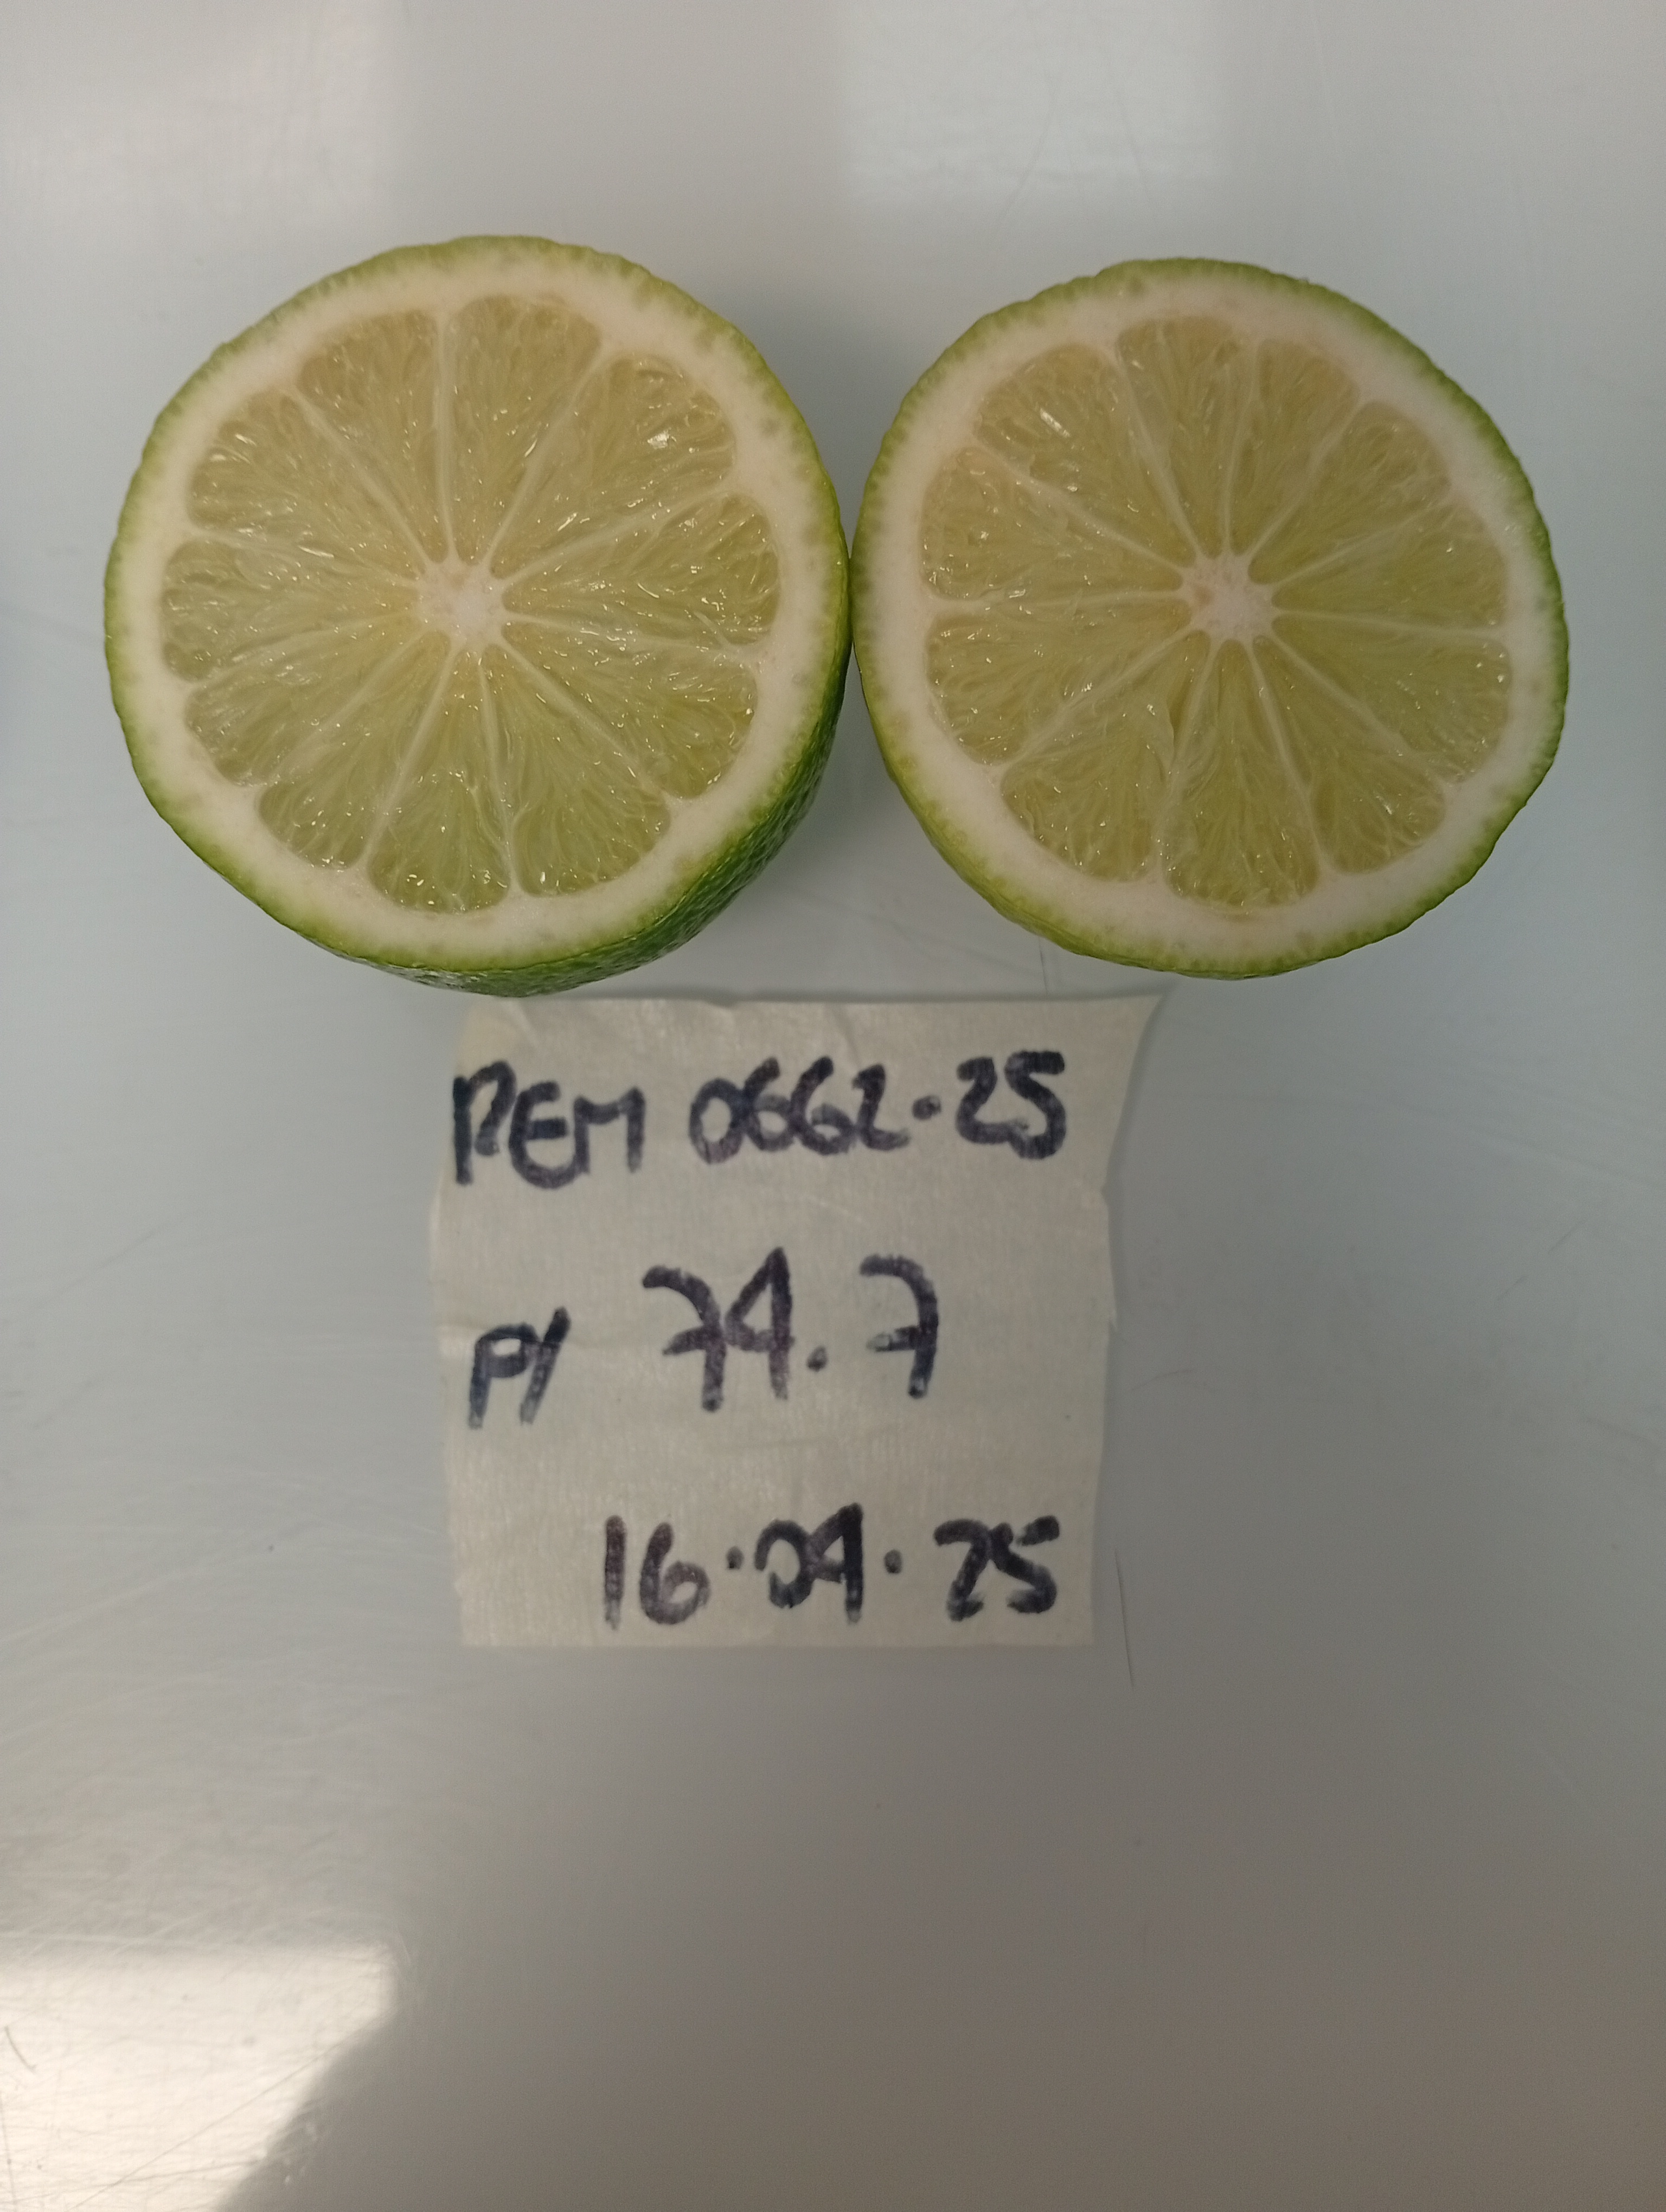 REM 0662.25
P/ 74.7
16.04.25